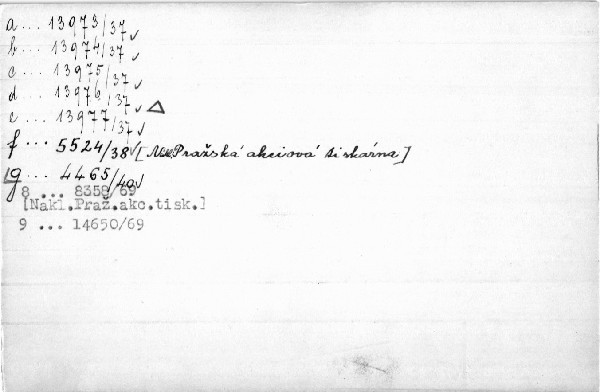 a ... 13973/37✓
b ... 13974/37✓
c ... 13975/37✓
d ... 13976/37✓ △
e ... 13977/37✓
f ... 5524/38✓ [Pražská akciová tiskárna]
g ... 4465/40✓
8 ... 8358/69
[Nakl.Praž.akc.tisk.]
9 ... 14650/69